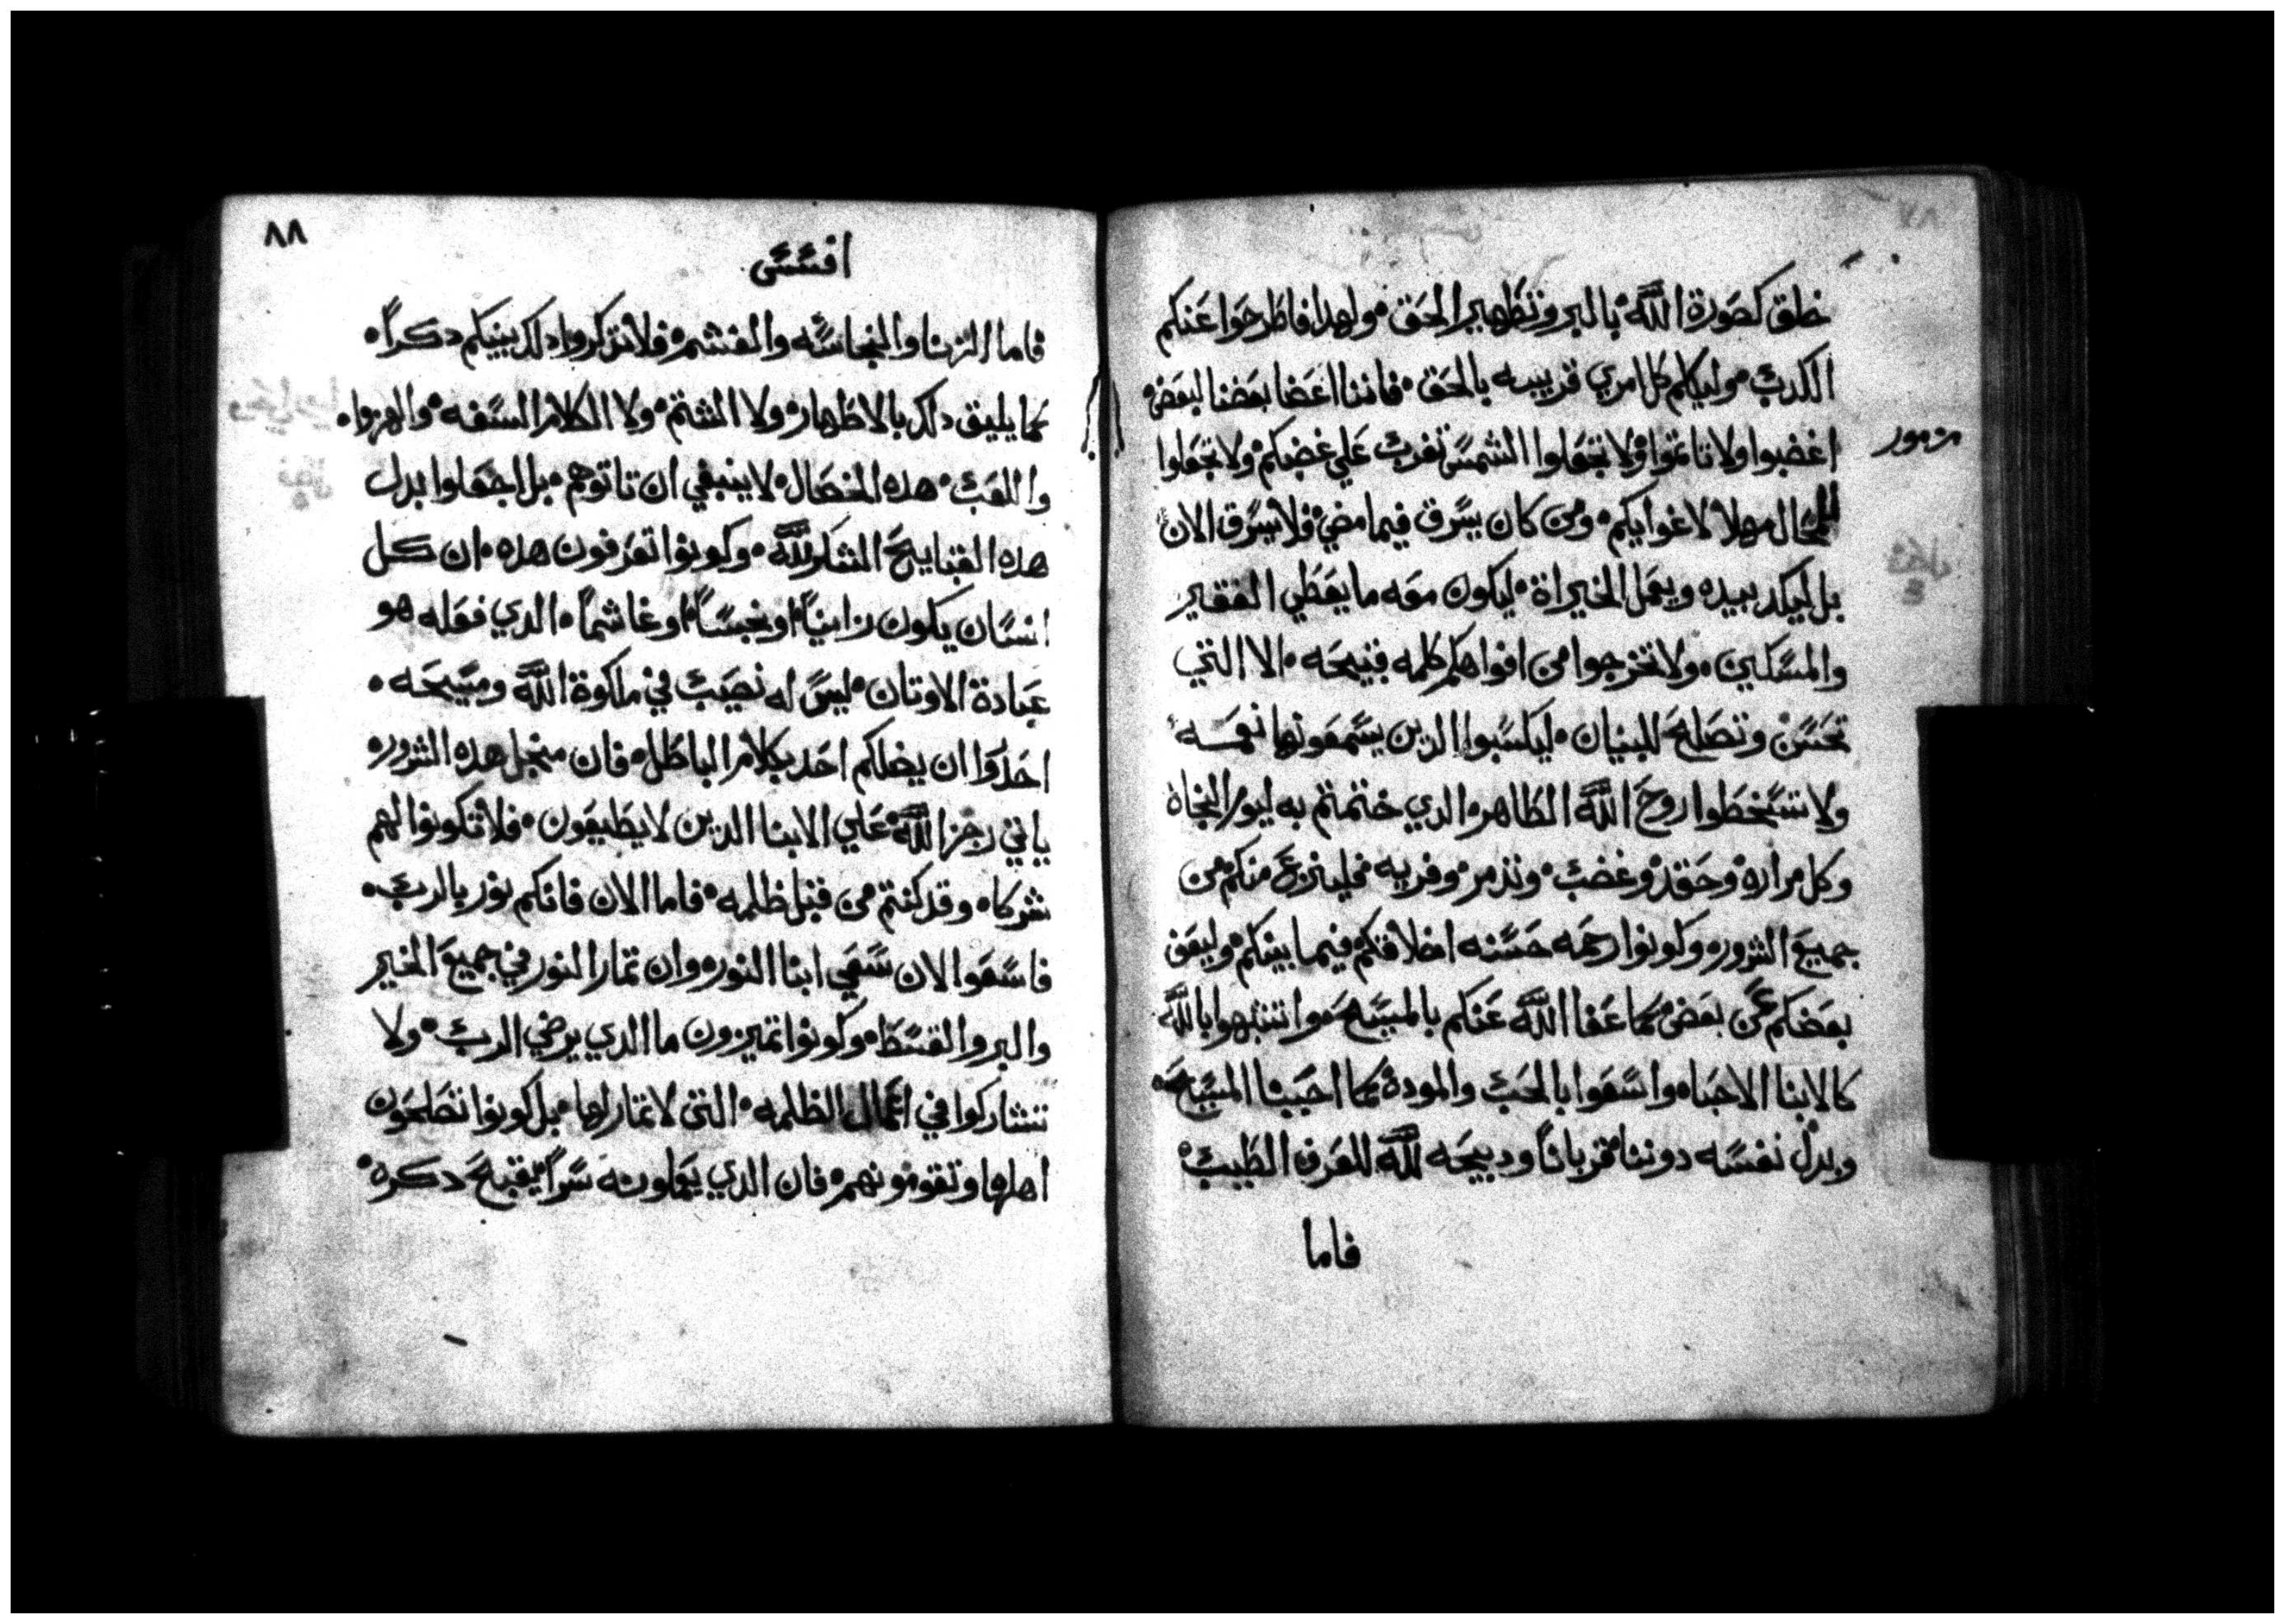 خلق كصورة الله بالبر وتطهير الحق ولهدا فاطرحوا عنكم
الكدب وليكلم كل امري قريبه بالحق فاننا اعضا بعضنا لبعض
مزمور
اغضبوا ولا تاتموا ولا تجعلوا الشمس تغرب علي غضبكم ولا تجعلوا
للمحال مهلا لاغوايكم ومن كان يسرق فيما مضي فلا يسرق الان
بل ليكد بيده ويعمل الخيراة ليكون معه ما يعطي الفقير
والمسكين ولا تخرجوا من افواهكم كلمه قبيحه الا التي
تحسن وتصلح للبنيان ليكسبوا الدين يسمعونها نعمه
ولا تسخطوا روح الله الطاهر الدي ختمتم به ليوم النجاة
وكل مراره وحقد وغضب وتذمر وفريه فلينزع منكم من
جميع الشرور وكونوا رحمه حسنه اخلاقكم فيما بينكم وليعف
بعضكم عن بعض كما عفا الله عنكم بالمسيح وتشبهوا بالله
كالابنا الاحباه واسعوا بالحب والمودة كما احبنا المسيح
وبدل نفسه دوننا قربانا ودبيحه لله للعرف الطيب
فاما
٨٨
افسس
فاما الزنا والنجاسه والغشم فلا تذكروا دلك بينكم دكرا
كما يليق دلك بالاطهار ولا الشتم ولا الكلام السفه والهزوا
واللعب هده الخصال لا ينبغي ان تاتوهم بل اجعلوا بدل
هده القبايح الشكر لله وكونوا تعرفون هده ان كل
انسان يكون زانيا او نجسا او غاشما الدي فعله هو
عبادة الاوتان ليس له نصيب في ملكوة الله ومسيحه
احدوا ان يضلكم احد بكلام الباطل فان منجل هده الشرور
ياتي رجز الله علي الابنا الدين لا يطيعون فلا تكونوا لهم
شركاه وقد كنتم من قبل ظلمه فاما الان فانكم نور بالرب
فاسعوا الان سعي ابنا النور وان تمار النور في جميع الخير
والبر والقسط وكونوا تميزون ما الدي يرضي الرب ولا
تشاركوا في اعمال الظلمه التى لا تمار لها بل كونوا تصلحون
اهلها وتقومونهم فان الدي يعملونه سرا يقبح دكره